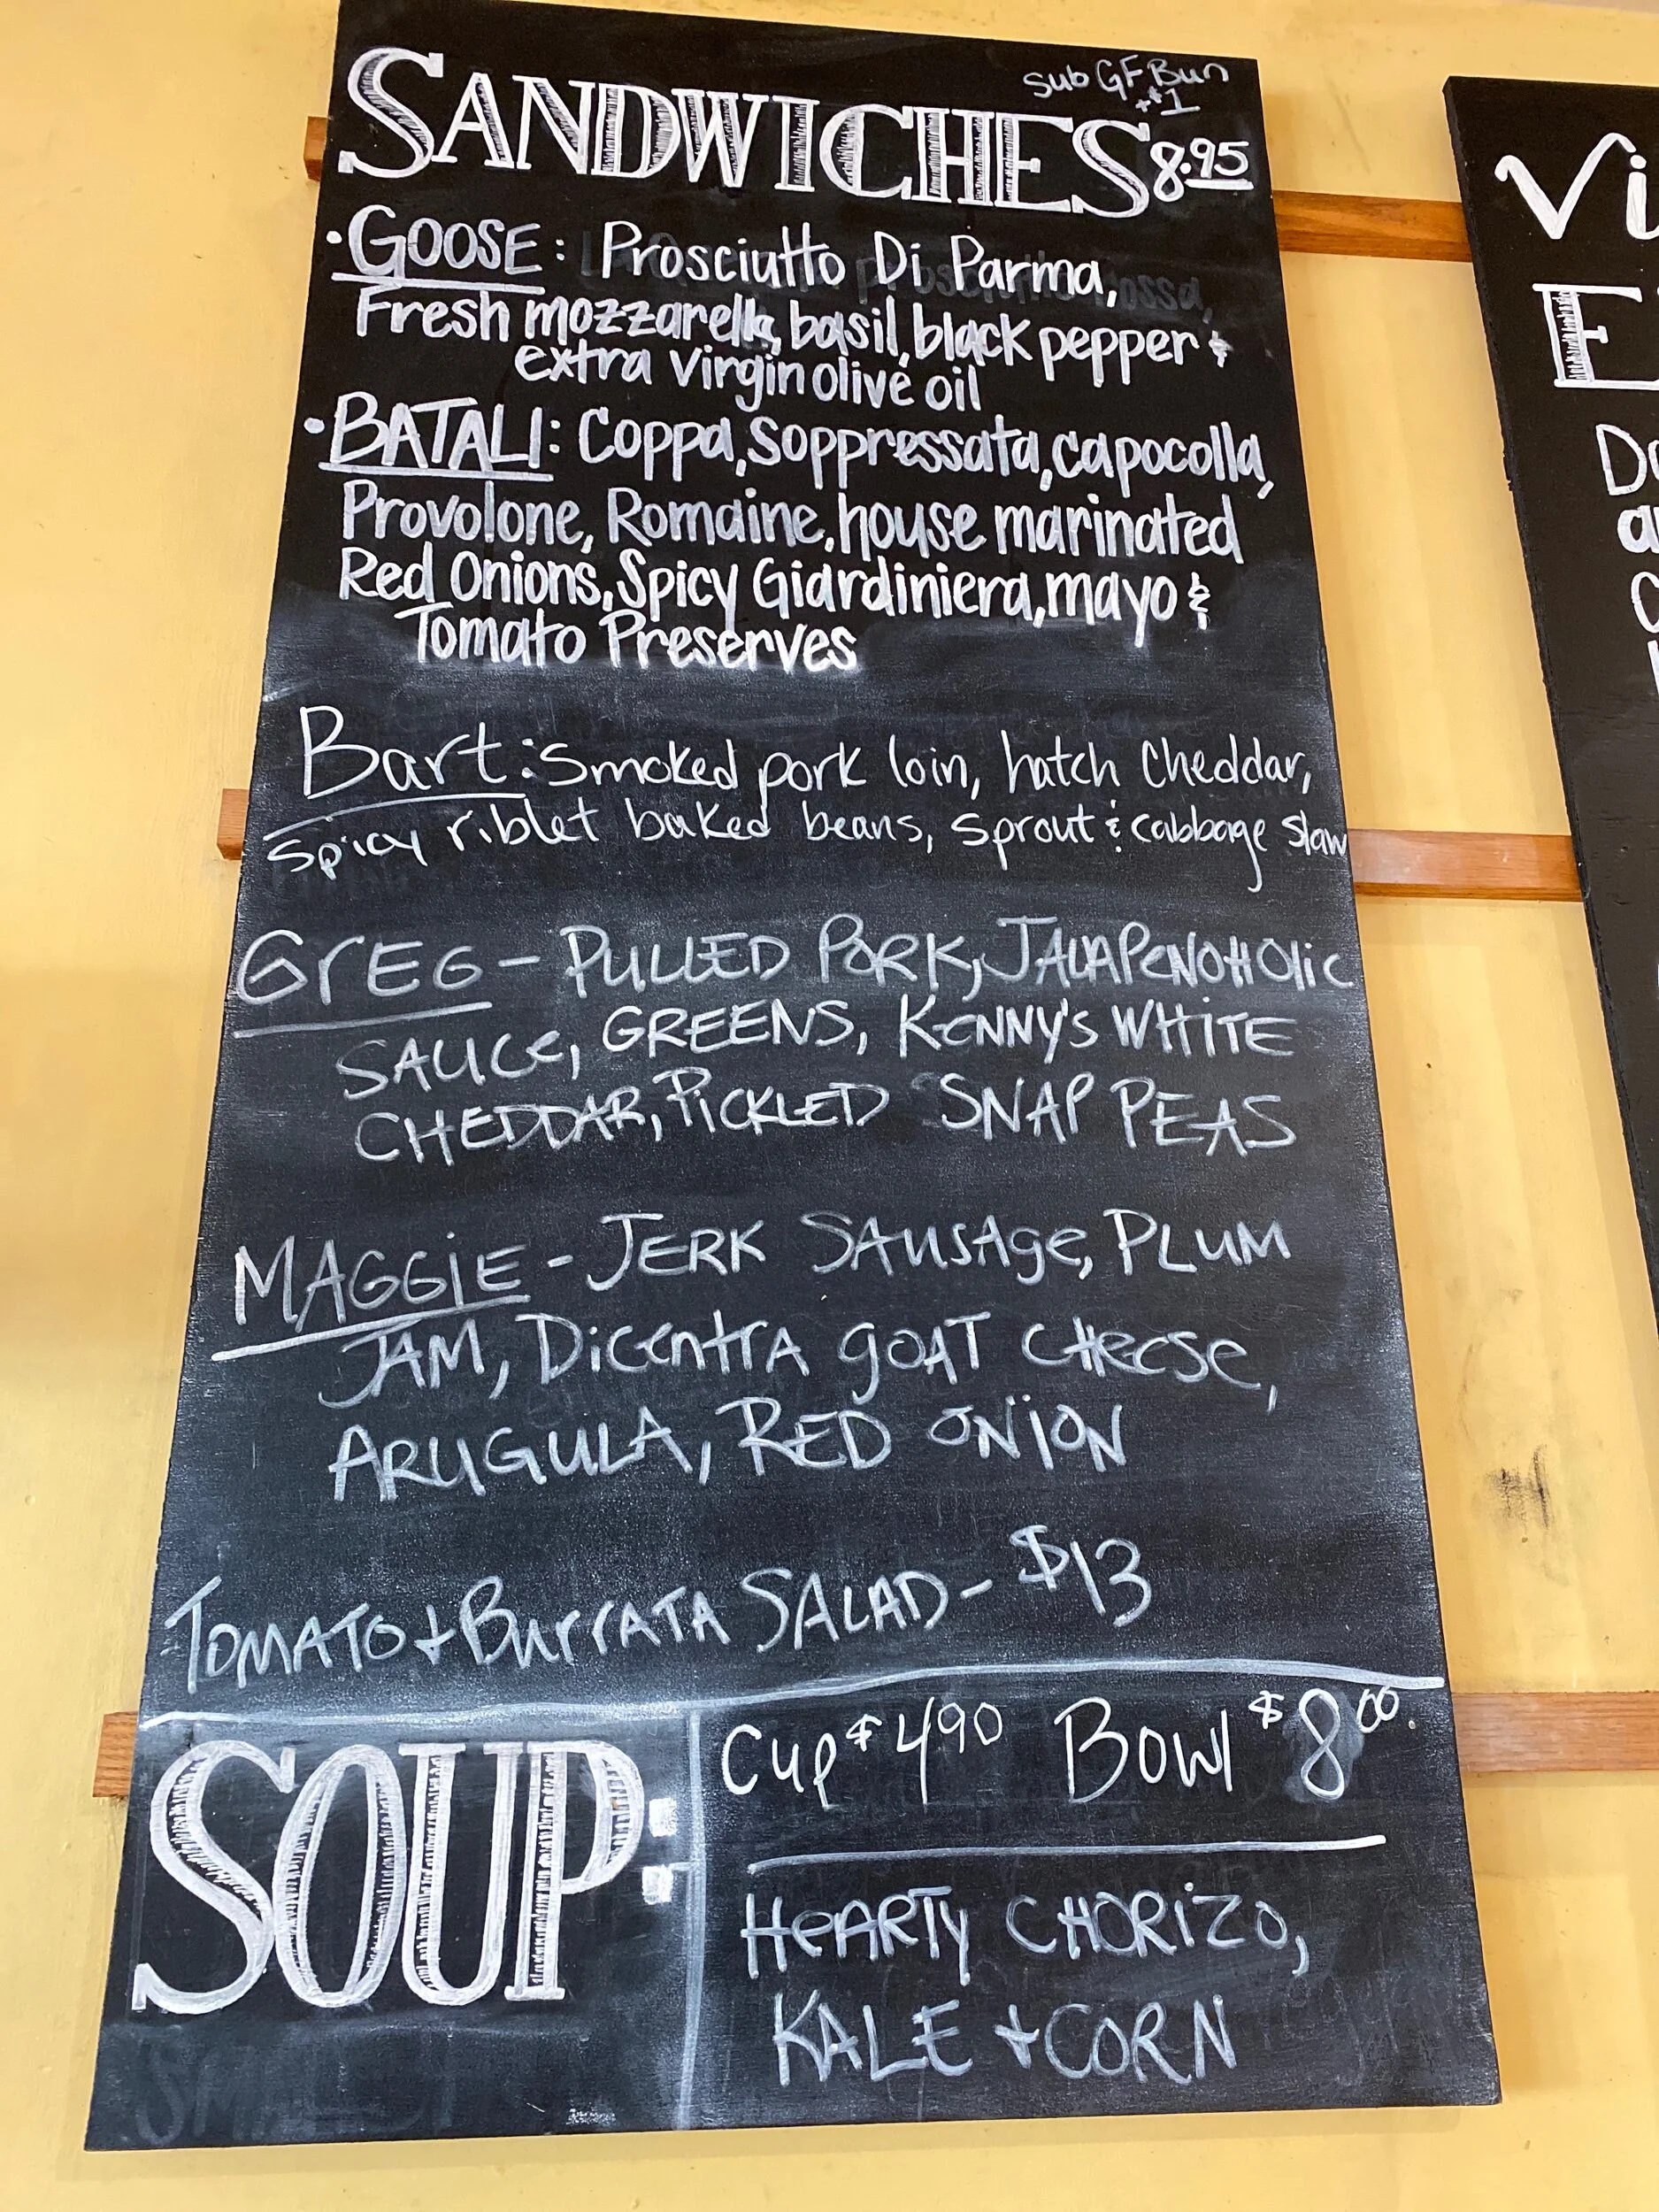 sub GF Bun
+$1
SANDWICHES 8.95
• GOOSE: Prosciutto Di Parma,
Fresh mozzarella, basil, black pepper &
extra virgin olive oil
• BATALI: Coppa, Soppressata, capocolla,
Provolone, Romaine, house marinated
Red Onions, Spicy Giardiniera, mayo &
Tomato Preserves
Bart: Smoked pork loin, hatch cheddar,
Spicy riblet baked beans, sprout & cabbage slaw
GrEG - PULLED PORK, JALAPeNOHOlic
SAUCe, GREENS, KeNNY'S WHITE
CHEDDAR, PiCKLED SNAP PEAS
MAGGiE - JERK SAusAge, PLUM
JAM, DiCentrA gOAT CHeese,
ARUGULA, RED ONiON
TOMATO + BurrATA SALAD - $13
SOUP:
Cup $4.90 Bowl $8.00
HeARTy CHORiZO,
KALE + CORN
Vi